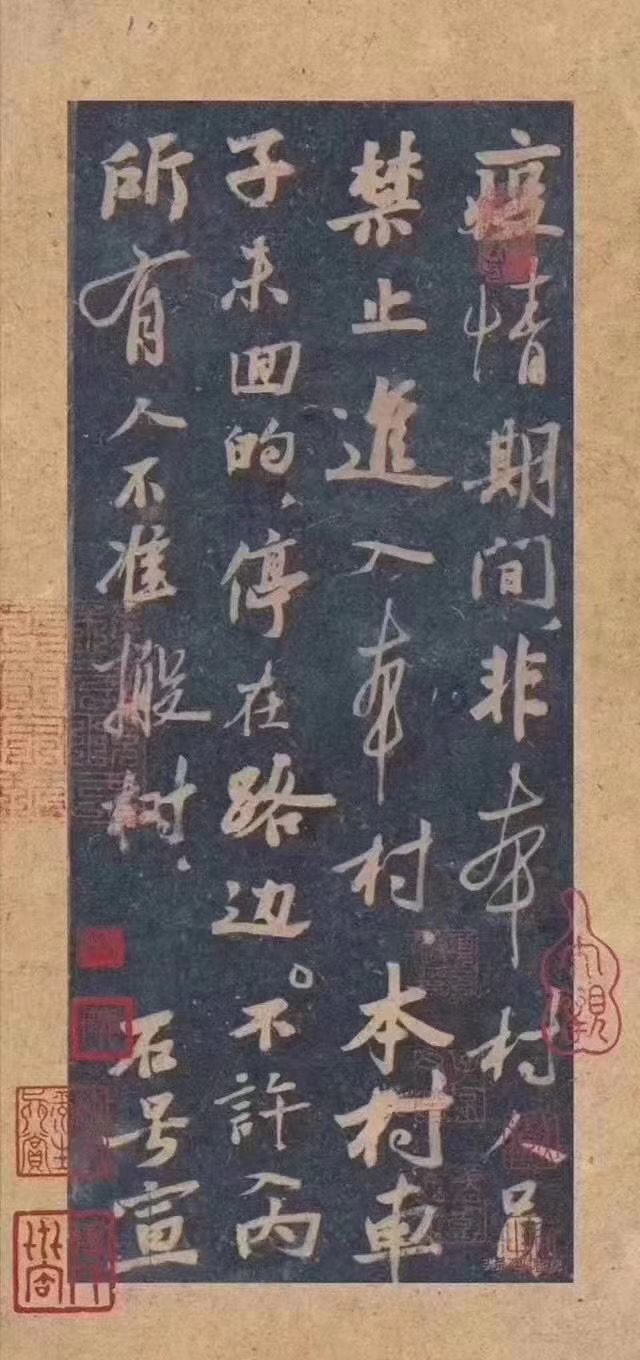 疫情期间,非本村人员
禁止進入本村.本村車
子未回的,停在路边。不許入内
所有人不准搬树.
石号宣
大觀